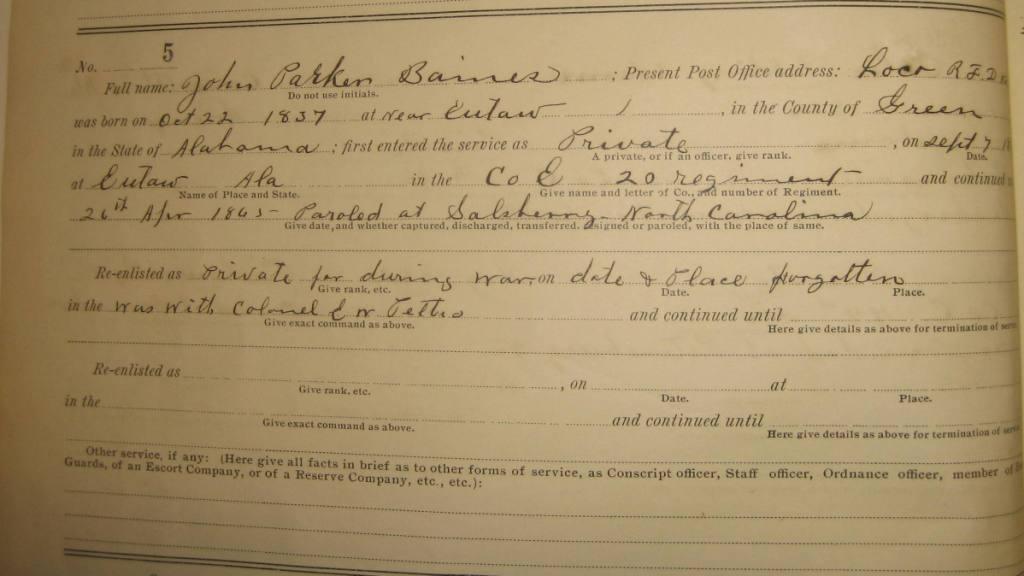 No. 5
Full name: John Parker Baines ; Present Post Office address: Loco R.F.D.
Do not use initials.
was born on Oct 22 1837 at near Eutaw , in the County of Green
in the State of Alabama ; first entered the service as Private , on Sept 7
A private, or if an officer, give rank. Date.
at Eutaw Ala in the Co E 20 regiment and continued
Name of Place and State. Give name and letter of Co., and number of Regiment.
26th Apr 1865 - Paroled at Salsberry - North Carolina
Give date, and whether captured, discharged, transferred, resigned or paroled, with the place of same.
Re-enlisted as Private for during war on date & Place forgotten
Give rank, etc. Date. Place.
in the was with Colonel E W and continued until
Give exact command as above. Here give details as above for termination of
Re-enlisted as , on at
Give rank, etc. Date. Place.
in the and continued until
Give exact command as above. Here give details as above for termination of
Other service, if any: (Here give all facts in brief as to other forms of service, as Conscript officer, Staff officer, Ordnance officer, member of
Guards, of an Escort Company, or of a Reserve Company, etc., etc.):